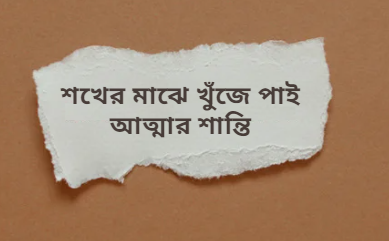 শখের মাঝে খুঁজে পাই
আত্মার শান্তি